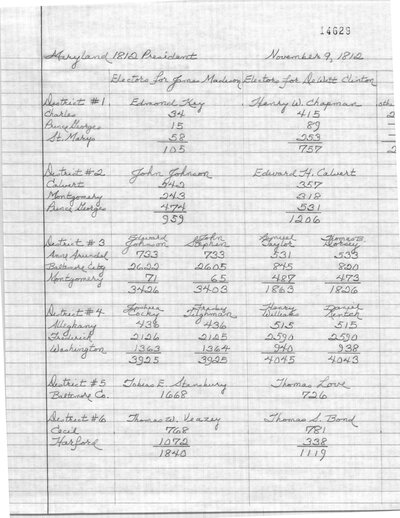 14629
Maryland 1812 President November 9, 1812
Electors for James Madison Electors for DeWitt Clinton
District #1 Edmond Key Henry W. Chapman oths
Charles 34 415 2
Prince Georges 15 89
St. Marys 58 253
105 757 2
District #2 John Johnson Edward H. Calvert
Calvert 242 357
Montgomery 243 318
Prince Georges 474 531
959 1206
District #3 Edward Johnson John Stephen Samuel Taylor Thomas B. Dorsey
Anne Arundel 733 733 531 533
Baltimore City 2622 2605 845 820
Montgomery 71 65 487 473
3426 3403 1863 1826
District #4 Cockey Frisby Tilghman Henry Williams Daniel Rentch
Alleghany 436 436 515 515
Frederick 2126 2125 2590 2590
Washington 1363 1364 940 938
3925 3925 4045 4043
District #5 Tobias E. Stansbury Thomas Love
Baltimore Co. 1668 726
District #6 Thomas W. Veazey Thomas S. Bond
Cecil 768 781
Harford 1072 338
1840 1119